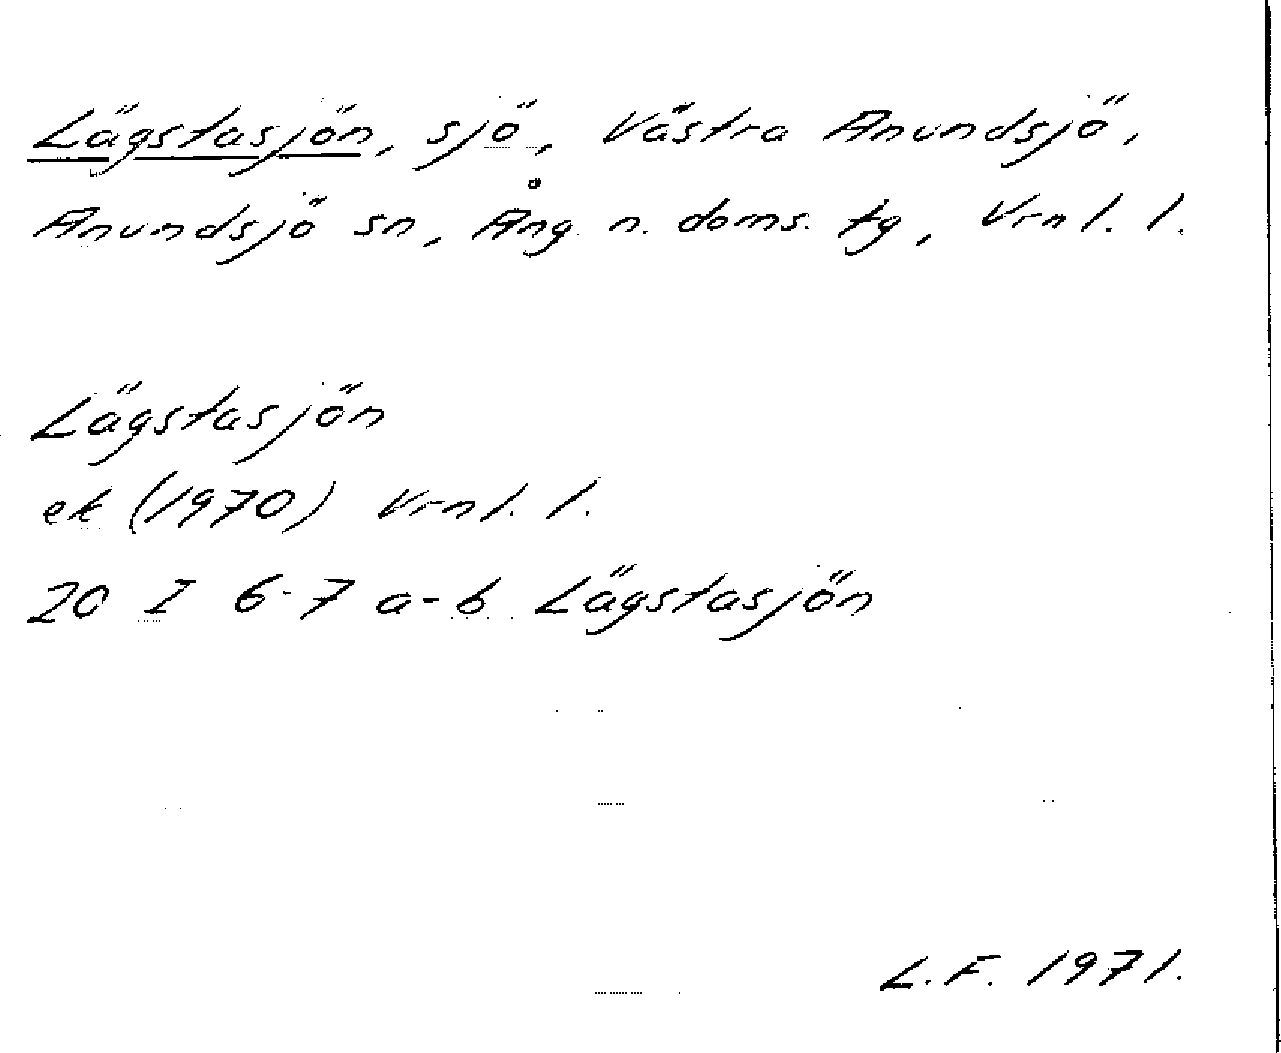 Lägstasjön, sjö, Västra Anundsjö,
Anundsjö sn, Ång. n. doms. tg, Vrnl. l.
Lägstasjön
ek (1970) Vrnl. l.
20 I 6-7 a-b Lägstasjön
L.F. 1971.